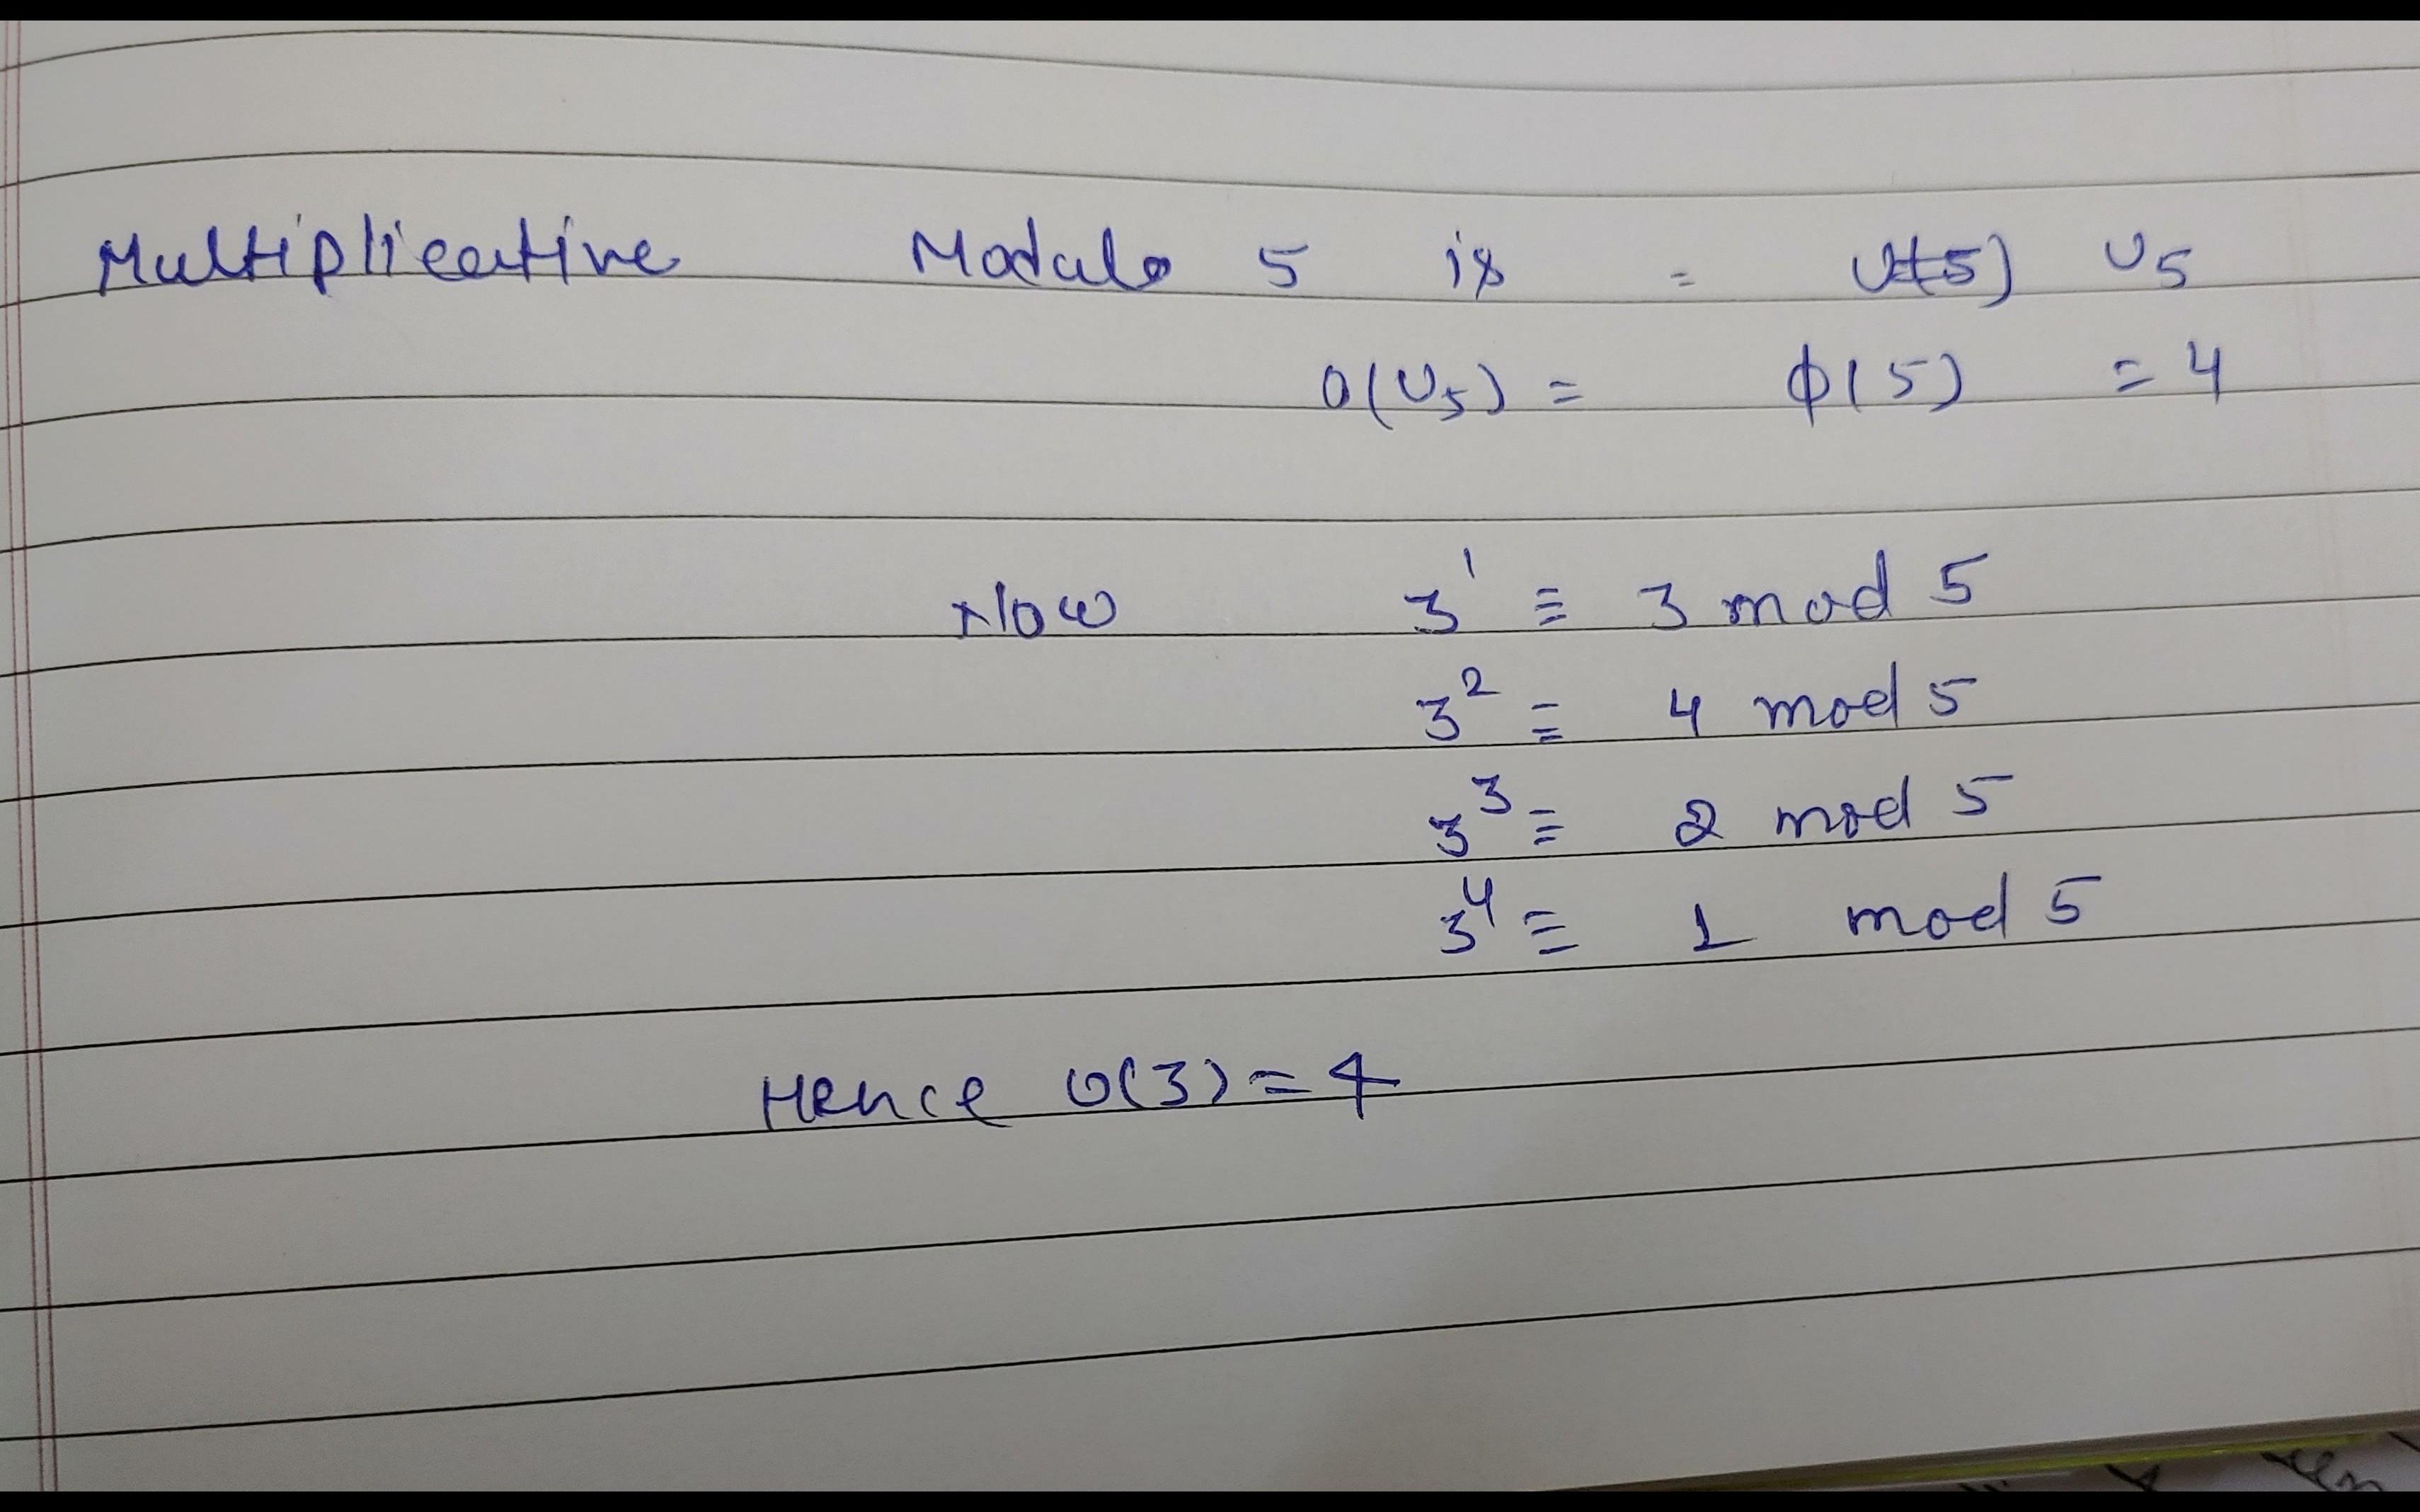 Multiplicative Modulo 5 is = U(5) U₅
O(U₅) = ϕ(5) = 4
Now 3¹ ≡ 3 mod 5
3² ≡ 4 mod 5
3³ ≡ 2 mod 5
3⁴ ≡ 1 mod 5
Hence O(3) = 4